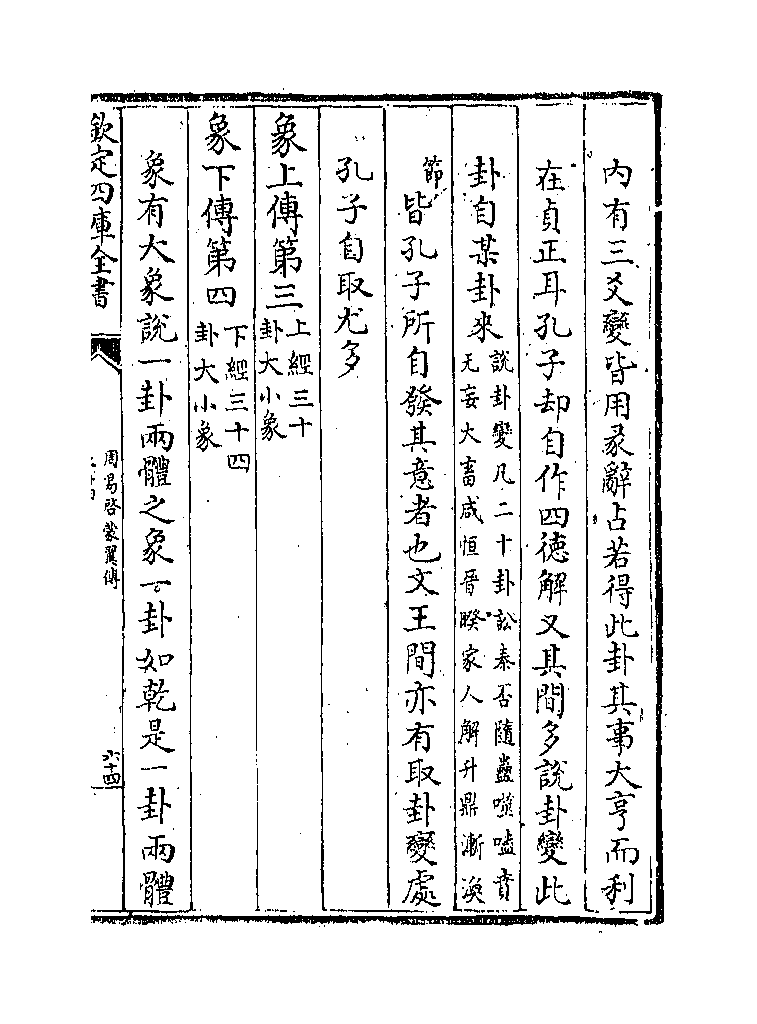 內有三爻變皆用彖辭占若得此卦其事大亨而利
在貞正耳孔子却自作四徳解又其間多說卦變此
卦自某卦來說卦變凡二十卦訟泰否隨蠱噬嗑賁
无妄大畜咸恒晉睽家人解升鼎漸渙
節皆孔子所自發其意者也文王間亦有取卦變處
孔子自取尤多
象上傳第三上經三十
卦大小象
象下傳第四下經三十四
卦大小象
象有大象說一卦兩體之象一卦如乾是一卦兩體
欽定四庫全書
周易啓蒙翼傳
六十四